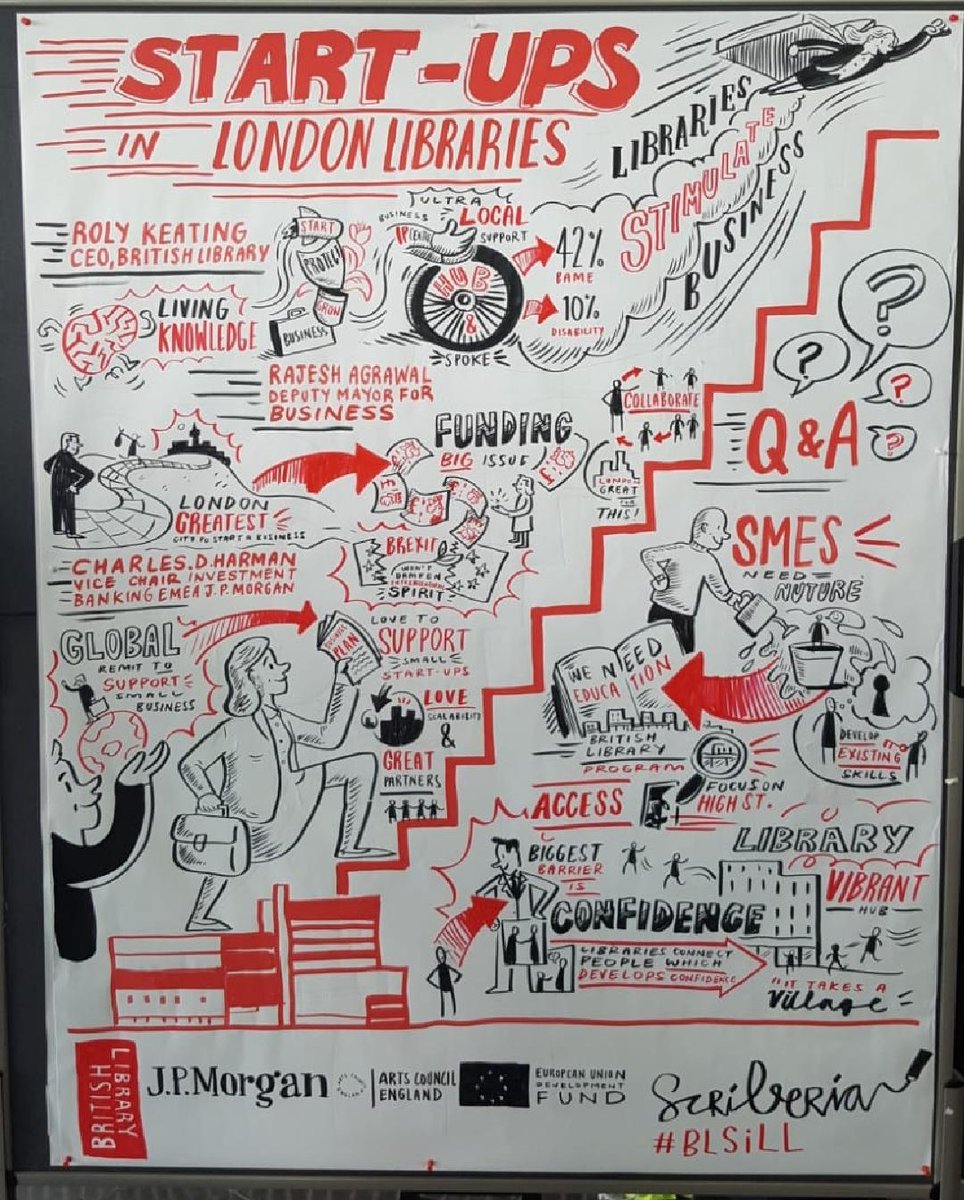 START-UPS
IN LONDON LIBRARIES
LIBRARIES
STIMULATE
BUSINESS
ROLY KEATING
CEO, BRITISH LIBRARY
LIVING
KNOWLEDGE
START
PROTECT
GROW
BUSINESS
ULTRA
LOCAL
SUPPORT
BUSINESS
IP CENTRE
HUB
&
SPOKE
42%
BAME
10%
DISABILITY
RAJESH AGRAWAL
DEPUTY MAYOR FOR
BUSINESS
LONDON
GREATEST
CITY TO START A BUSINESS
FUNDING
BIG ISSUE
COLLABORATE
LONDON
GREAT
FOR
THIS!
BREXIT
WON'T
DAMPEN
ENTREPRENEURIAL
SPIRIT
? ? ? ?
Q&A
CHARLES.D.HARMAN
VICE CHAIR INVESTMENT
BANKING EMEA J.P. MORGAN
GLOBAL
REMIT TO
SUPPORT
SMALL
BUSINESS
BUSINESS
PLAN
LOVE TO
SUPPORT
SMALL
START-UPS
LOVE
SCALABILITY
&
GREAT
PARTNERS
SMES
NEED
NUTURE
WE NEED
EDUCATION
BRITISH
LIBRARY
PROGRAM
DEVELOP
EXISTING
SKILLS
FOCUS ON
HIGH ST.
ACCESS
BIGGEST
BARRIER
IS
CONFIDENCE
LIBRARIES CONNECT
PEOPLE WHICH
DEVELOPS CONFIDENCE
LIBRARY
VIBRANT
HUB
"IT TAKES A
village
BRITISH
LIBRARY
J.P.Morgan
ARTS COUNCIL
ENGLAND
EUROPEAN UNION
DEVELOPMENT
FUND
Scriberia
#BLSiLL